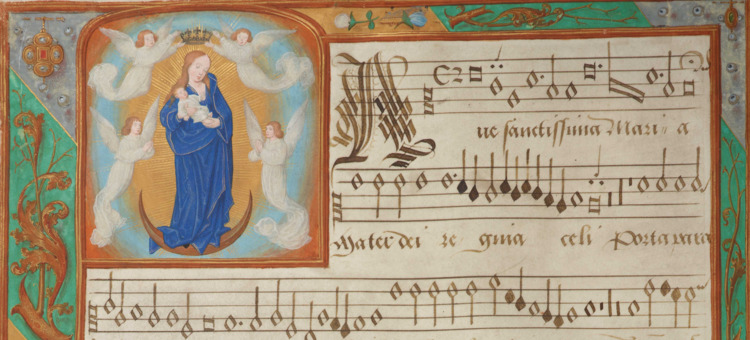 Aue sanctissima Maria
Mater dei regina celi Porta para